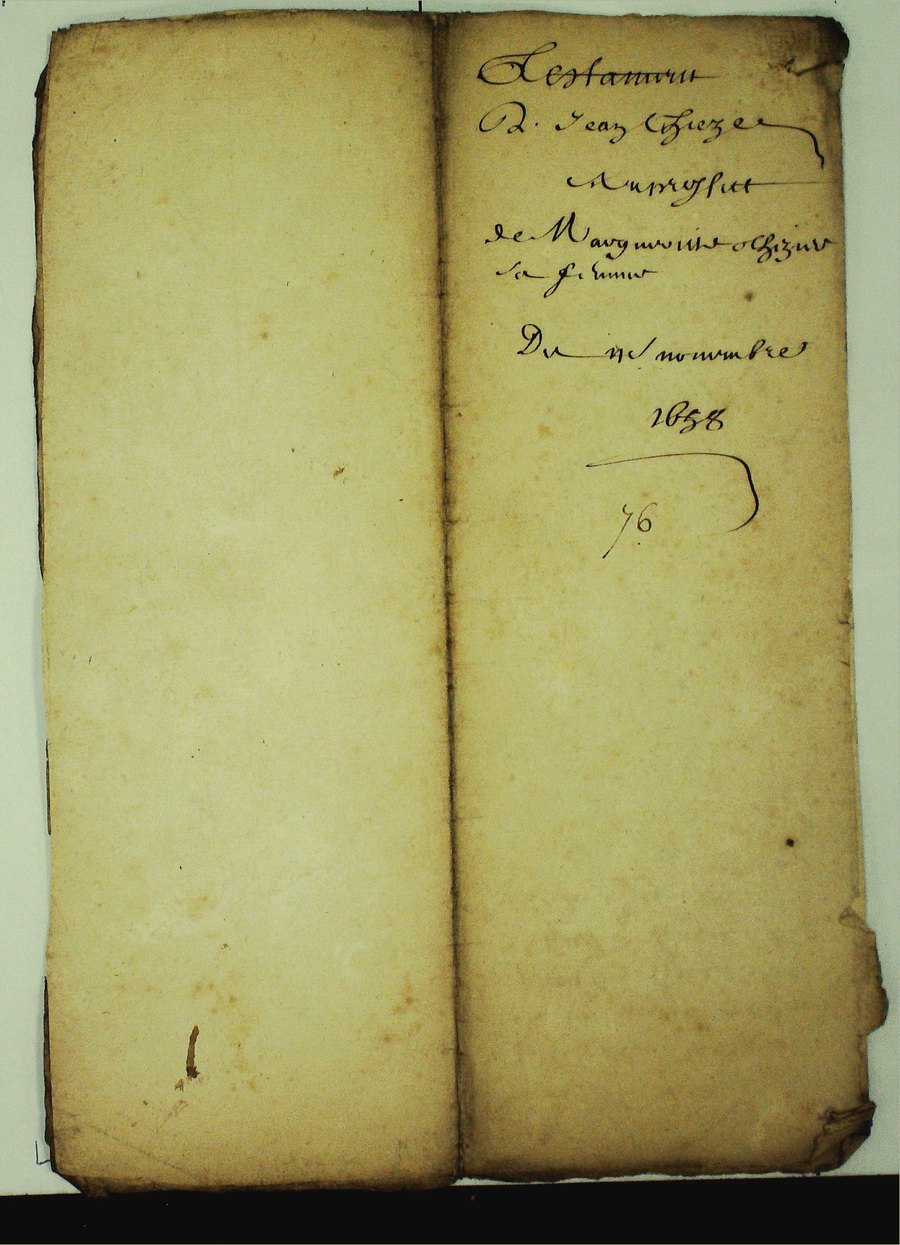 Testament
De Jean Chieze
Au proffitt
de Margueritte Chizier
sa femme
Du nouembre
1658
76